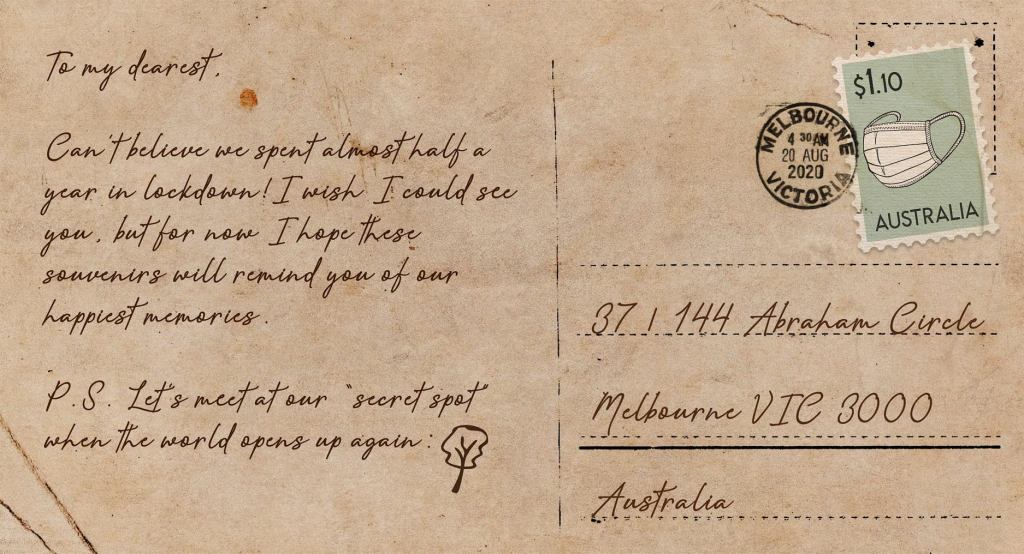 To my dearest,
Can't believe we spent almost half a
year in lockdown! I wish I could see
you, but for now I hope these
souvenirs will remind you of our
happiest memories.
P.S. Let's meet at our "secret spot"
when the world opens up again:
$1.10
AUSTRALIA
MELBOURNE
4 30 AM
20 AUG
2020
VICTORIA
37 / 144 Abraham Circle
Melbourne VIC 3000
Australia